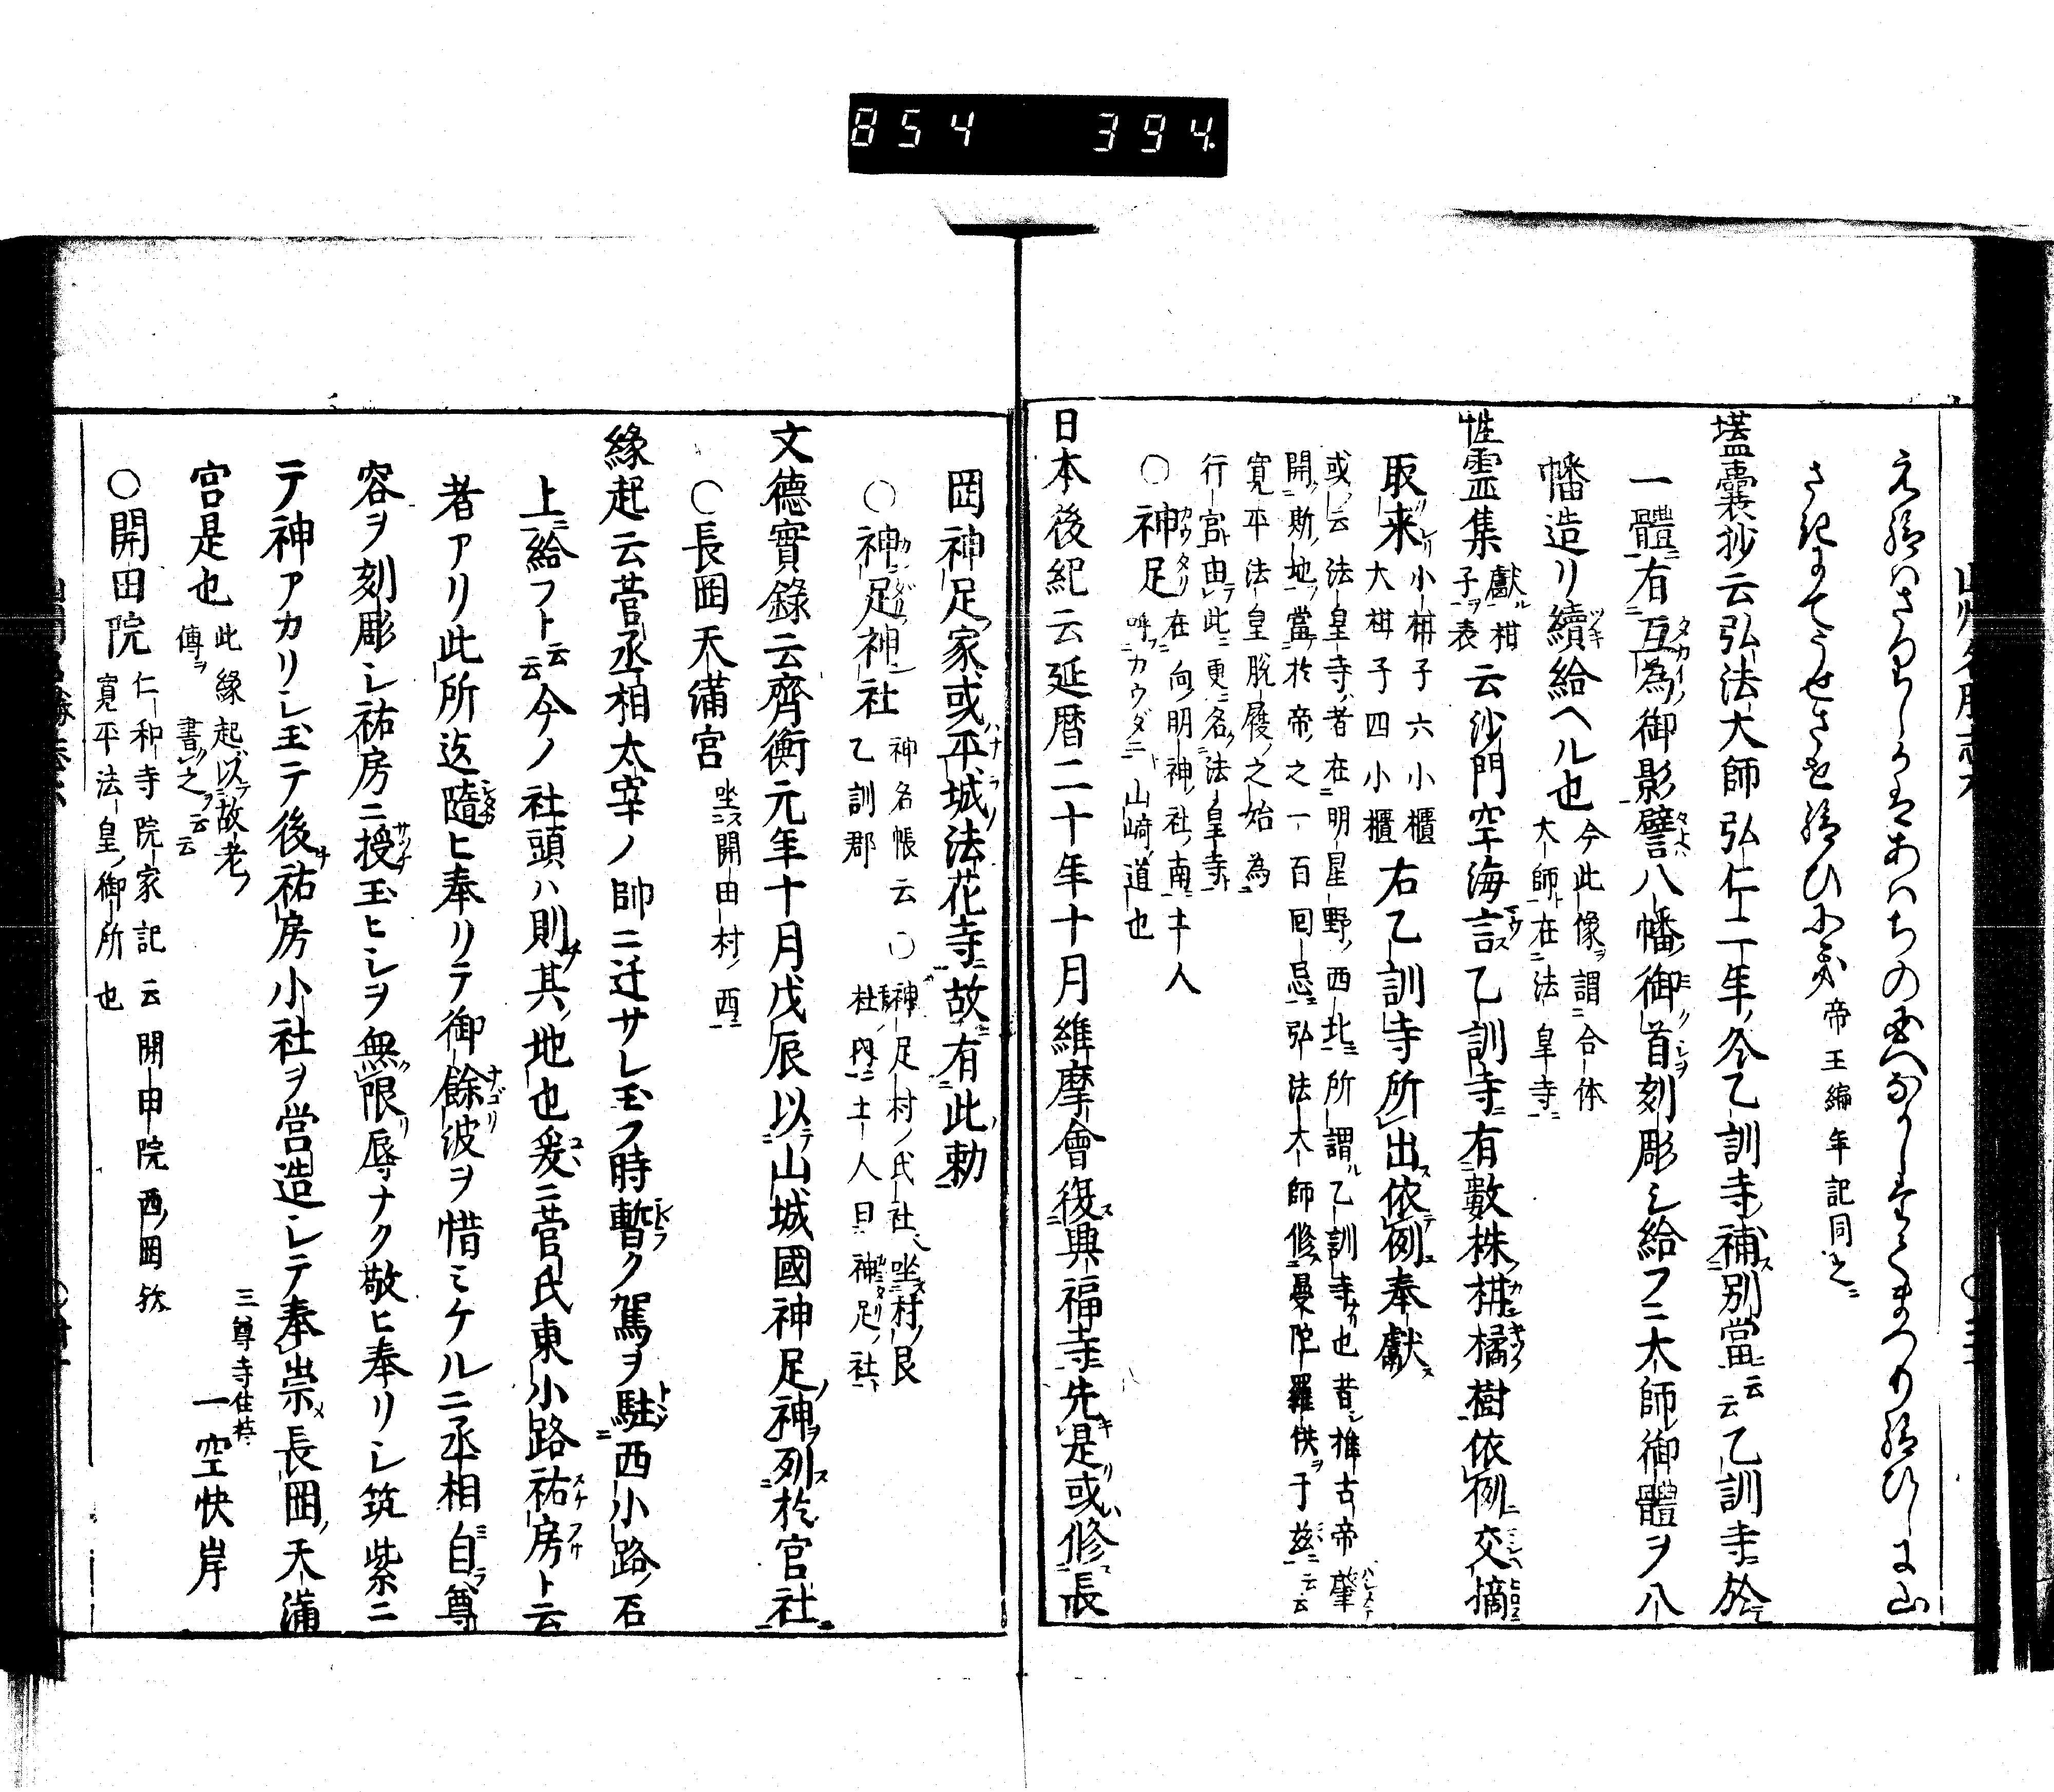 854 394.
さきにてうせさせ給ひにき 帝王編年記同之
壒囊抄云弘法大師弘仁二年冬乙訓寺補別當云云乙訓寺於
一體有互為御影譬八幡御首刻彫シ給フニ大師御體ヲ八
幡造リ續給ヘル也 今此像ヲ謂合体
大師在法皇寺
性霊集 獻柑
子ヲ表 云沙門空海言乙訓寺有數株柑橘樹依例交摘
取来 小柑子六小櫃
大柑子四小櫃 右乙訓寺所出依例奉獻
或云法皇寺者在明星野西北所謂乙訓寺也昔推古帝肇
開斯地當於帝之一百回忌弘法大師修曼陀羅供于茲云云
寛平法皇脱屣之始為
行宮由此更名法皇寺
○神足 在向明神社南土人
呼カウダニ山崎道也
日本後紀云延暦二十年十月維摩會復興福寺先是或修長
岡神足家或平城法花寺故有此勅
○神足神社 神名帳云
乙訓郡 ○神足村氏社坐村艮
杜内土人曰神足社
文德實錄云齊衡元年十月戊辰以山城國神足神列於官社
○長岡天滿宮 坐開田村西
緣起云菅丞相太宰ノ帥ニ迁サレ玉フ時暫ク駕ヲ駐西小路石
上給フト云云今ノ社頭ハ則其地也爰ニ菅氏東小路祐房ト云
者アリ此所迄隨ヒ奉リテ御餘波ヲ惜ミケルニ丞相自尊
容ヲ刻彫シ祐房ニ授玉ヒシヲ無限辱ナク敬ヒ奉リシ筑紫ニ
テ神アカリシ玉テ後祐房小社ヲ営造シテ奉崇長岡天滿
宮是也 此緣起以故老
傳書之云云 三尊寺住持 一空快岸
○開田院 仁和寺院家記云開田院西岡
寛平法皇御所也